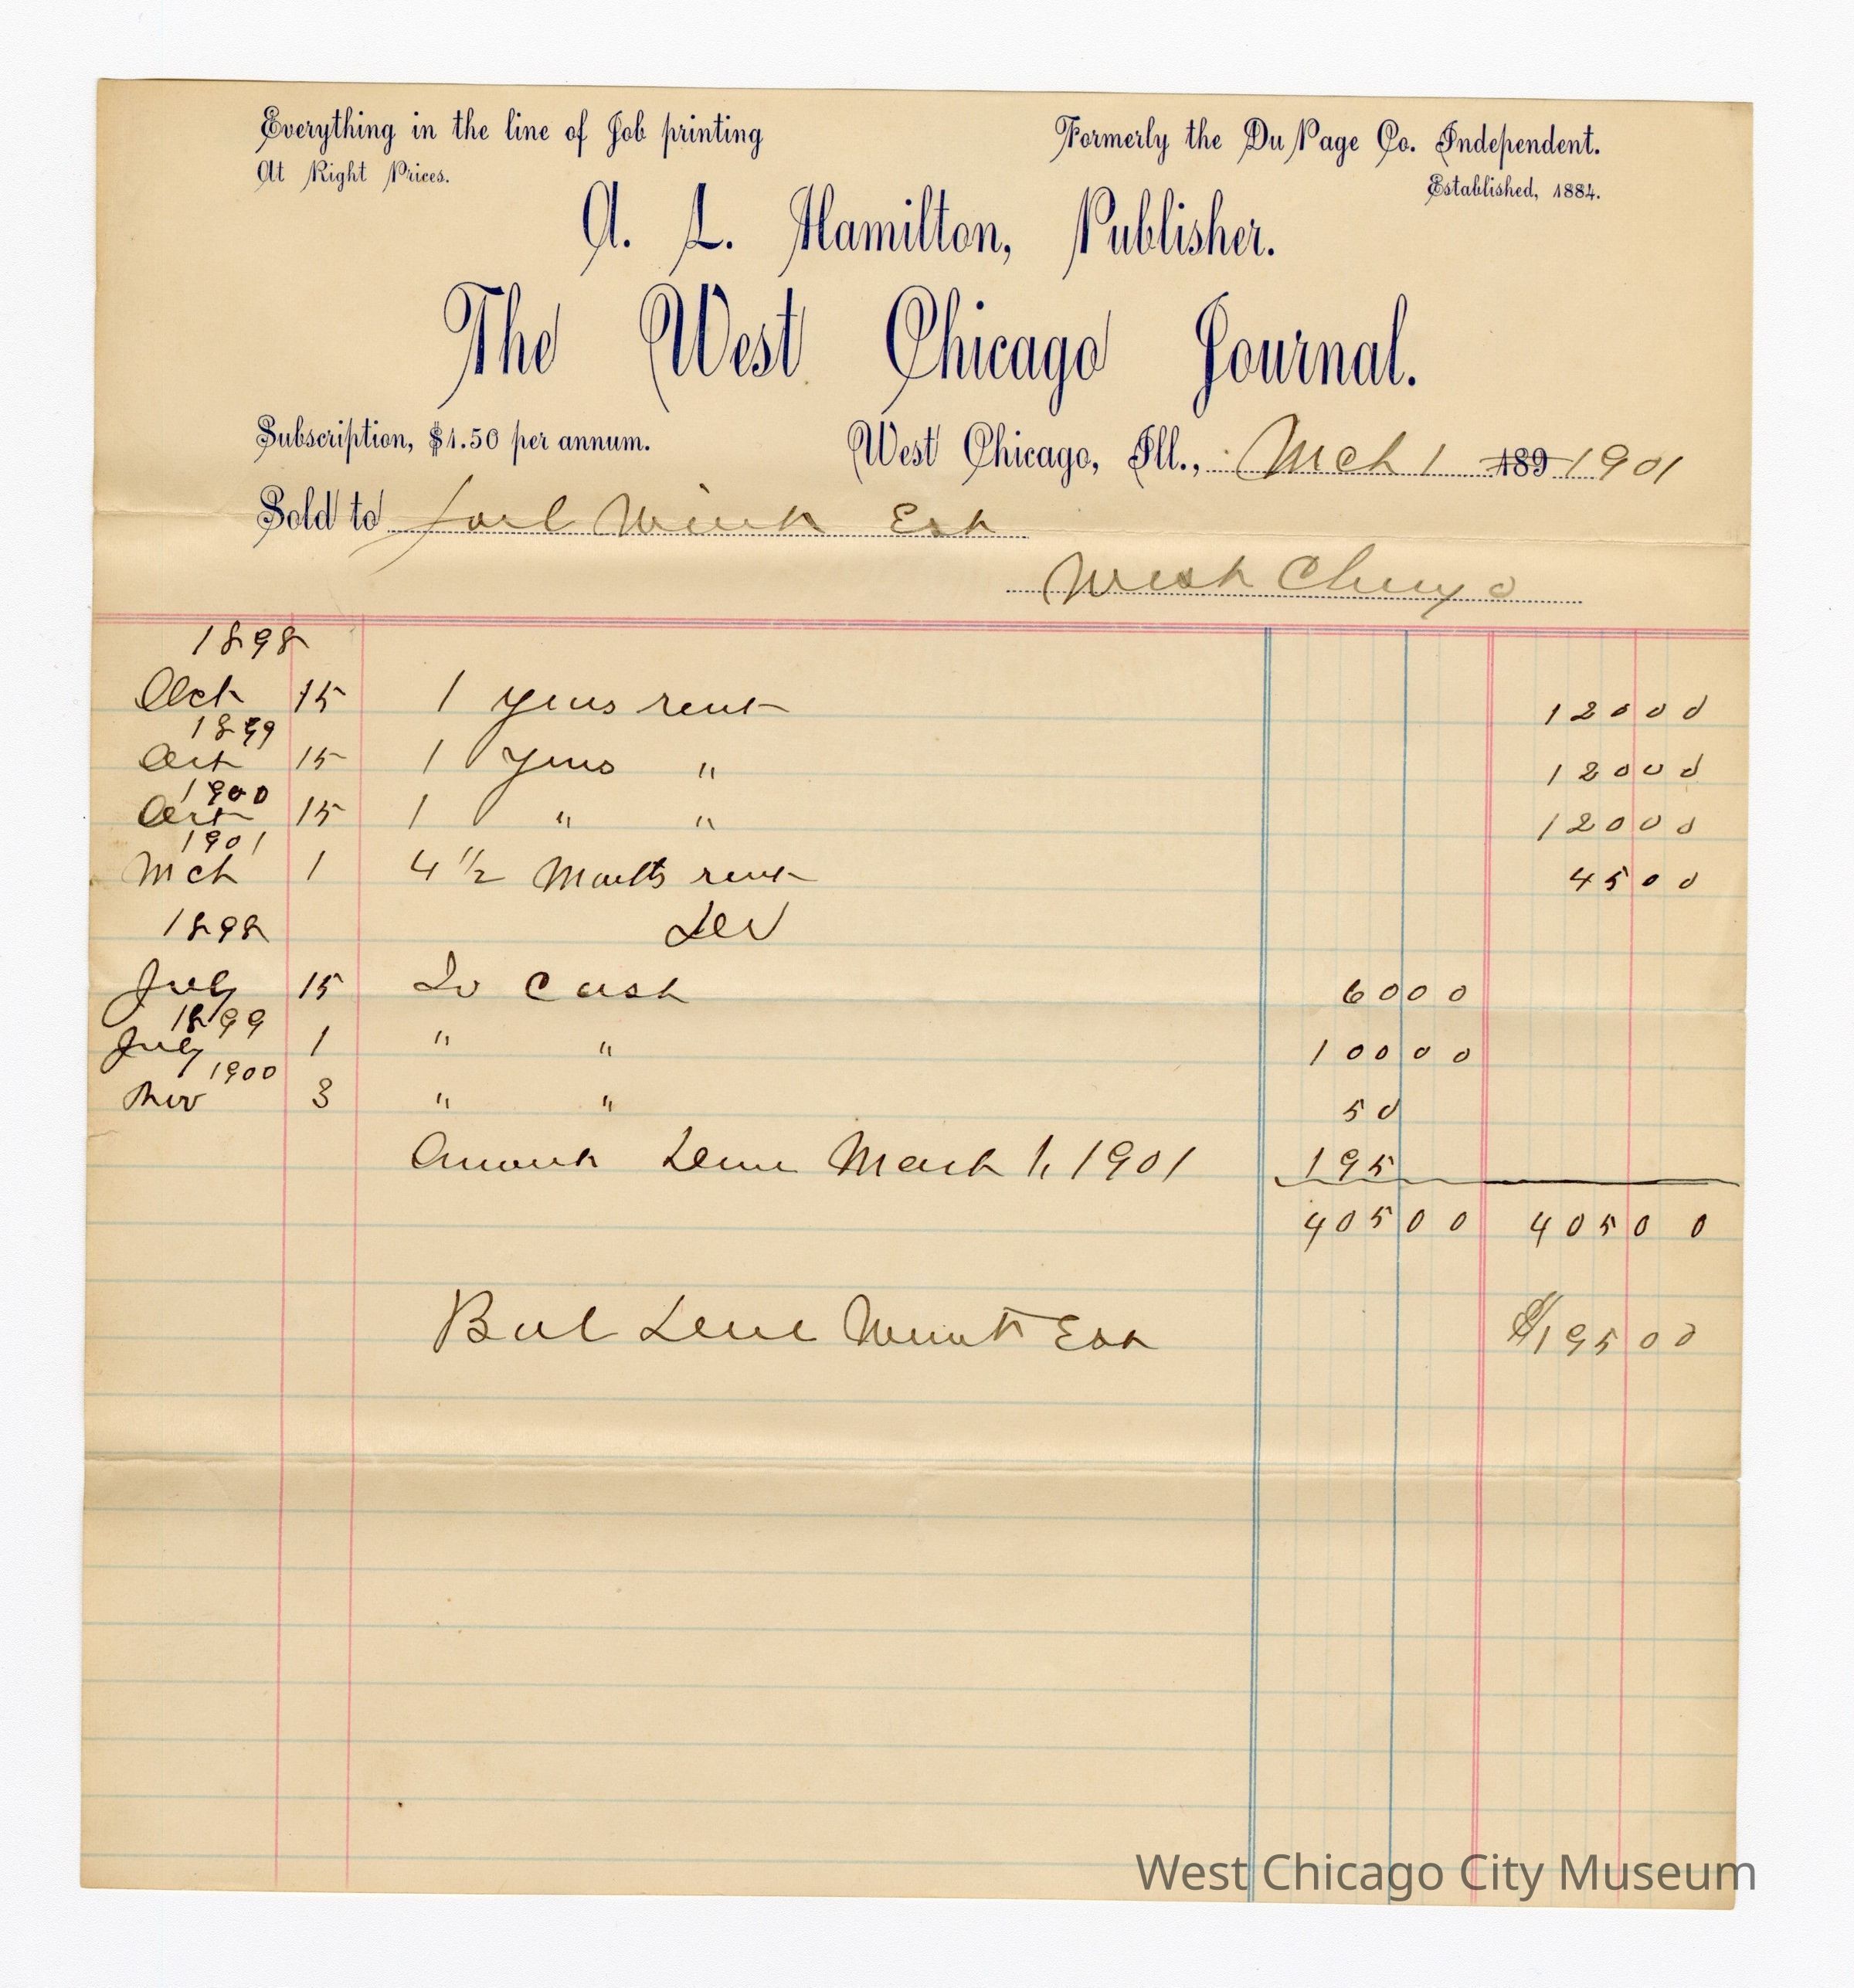 Everything in the line of Job printing
At Right Prices.
Formerly the Du Page Co. Independent.
Established, 1884.
A. L. Hamilton, Publisher.
The West Chicago Journal.
Subscription, $1.50 per annum.
West Chicago, Ill., Mch 1 189 1901
Sold to Joel Wiant Est
West Chicago
1898
Oct 15 1 years rent 120 00
1899
Oct 15 1 years " 120 00
1900
Oct 15 1 " " 120 00
1901
Mch 1 4 1/2 Months rent 45 00
1898
July 15 To Cash 60 00
1899
July 1 " " 100 00
1900
Nov 3 " " 50
Amount Due March 1, 1901 195
405 00 405 00
Bal Due Wiant Est $195 00
West Chicago City Museum